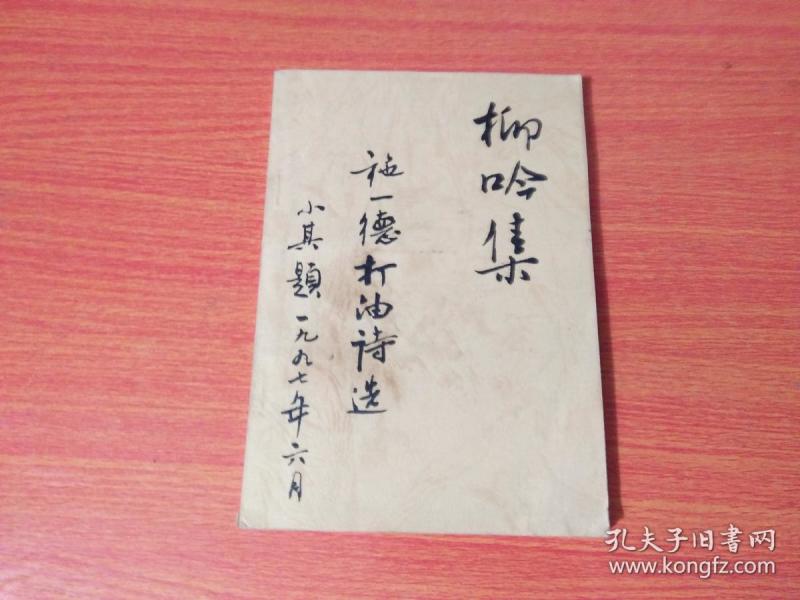 柳吟集
施一德打油诗选
小其题一九九七年六月
孔夫子旧书网
www.kongfz.com